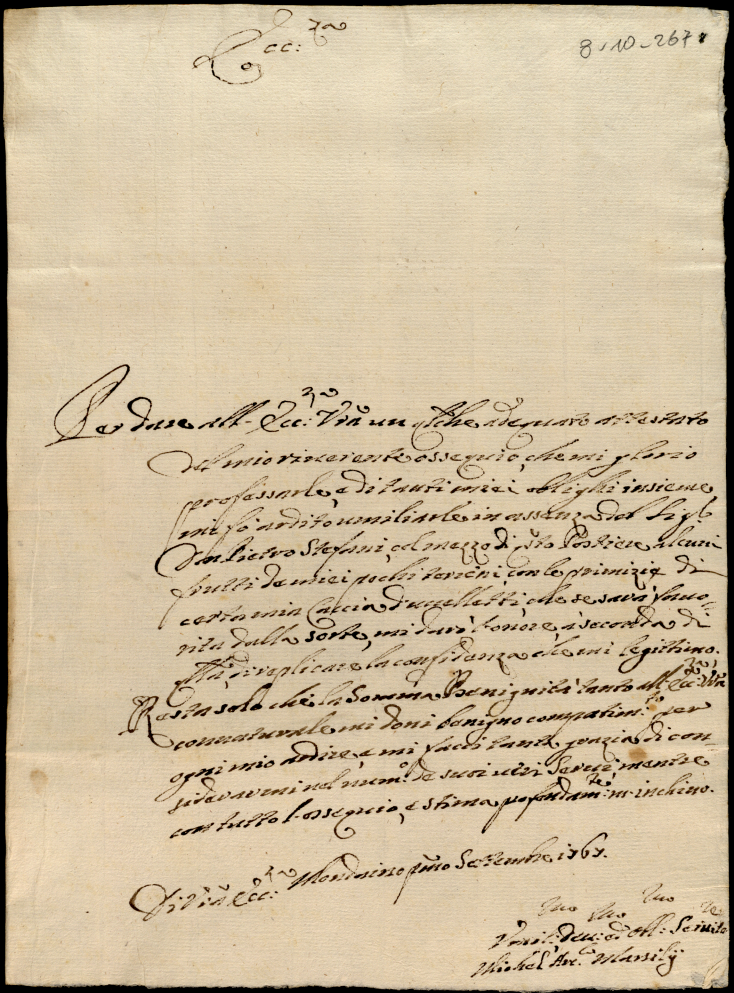 8-10-267
Ecc:za
Per dare all' Ecc:za Vra un qlche adequato attestato
del mio riverente ossequio, che mi glorio
professarle, e di tanti miei oblighi insieme
mi fò ardito umiliarle in assenza del Sigr
Dn Pietro Stefani, col mezzo di qsto Postiere alcuni
frutti de miei pochi terreni con le primizie di
certa mia Caccia d'uccelletti, che se sarà favo-
rita dalla sorte, mi darà l'onore, à seconda di
qsta, di replicare la confidenza che mi legittimo.
Resta solo che la Somma Benignità tanto all' Ecc:za Vra
connaturale mi doni benigno compatim:to per
ogni mio ardire, e mi facci tanta grazia di con-
siderarmi nel num:o de suoi veri Servi mentre
con tutto l'ossequio, e stima profondam:te m'inchino.
Di Vra Ecc:za Mondaino pmo Settembre 1767.
Umil:mo Dev:mo ed Obl:mo Servite
Michel' Ar. Marsilij